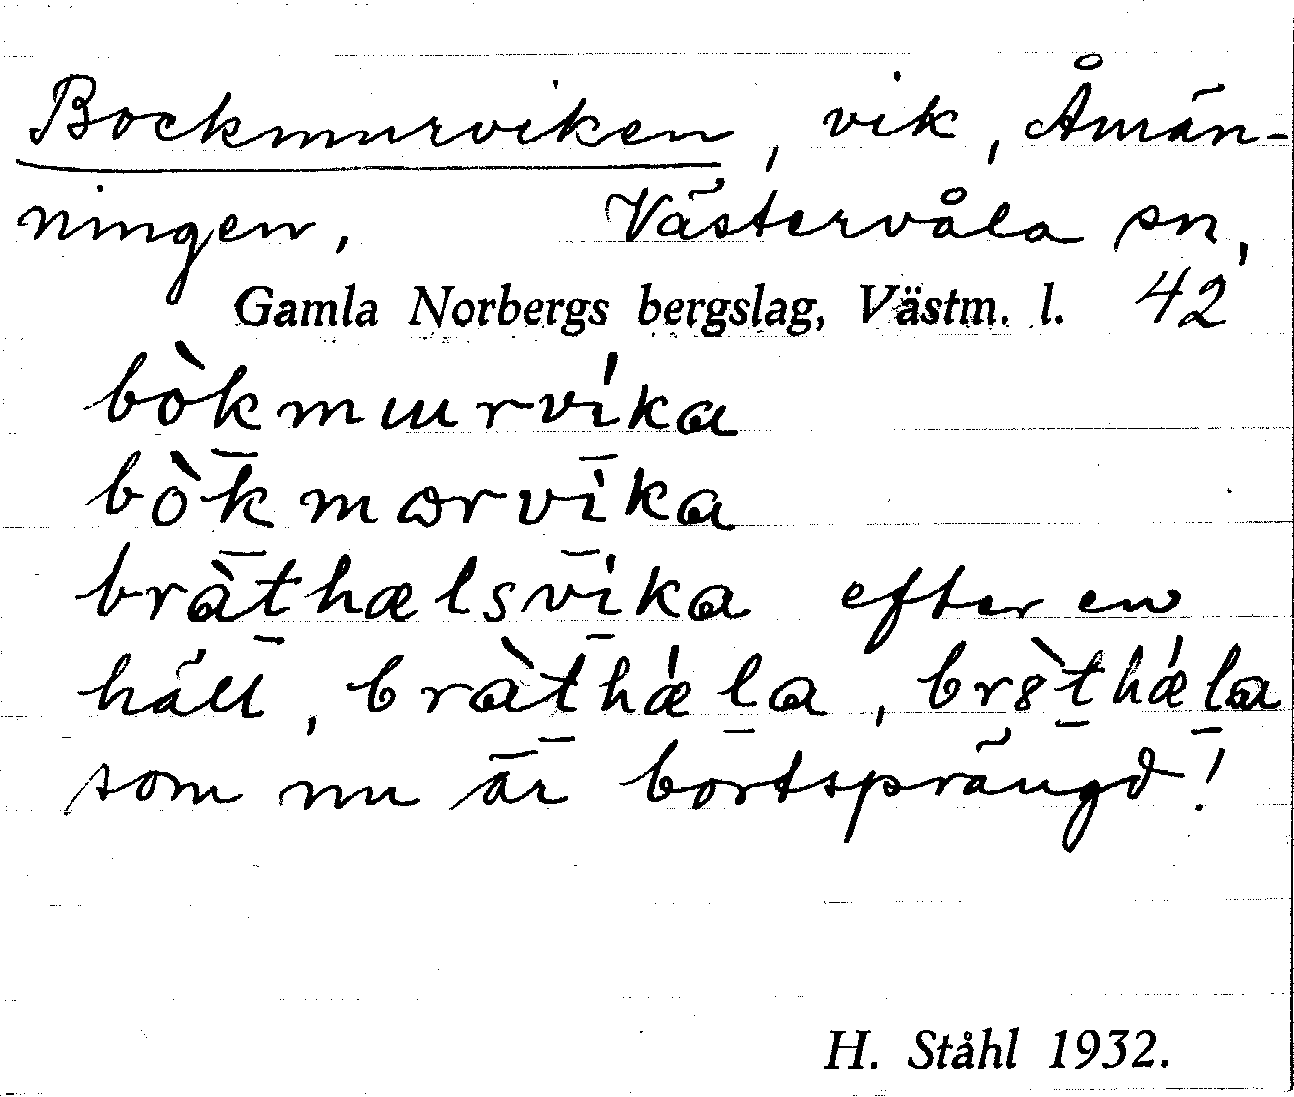 Bockmurviken, vik, Åmän-
ningen, Västervåla sn,
Gamla Norbergs bergslag, Västm. l. 42
bòk̠mɯrvi̠ka
bòk̠mꞷrvi̠ka
bràt̠hælsvi̠ka efter en
häll, bràt̠hæl̠a, br8̀t̠hæl̠a
som nu är bortsprängd!
H. Ståhl 1932.